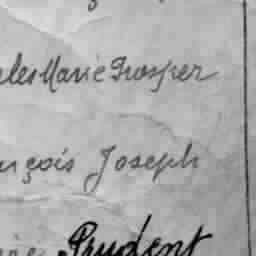 les Marie Prosper
nçois Joseph
Prudent